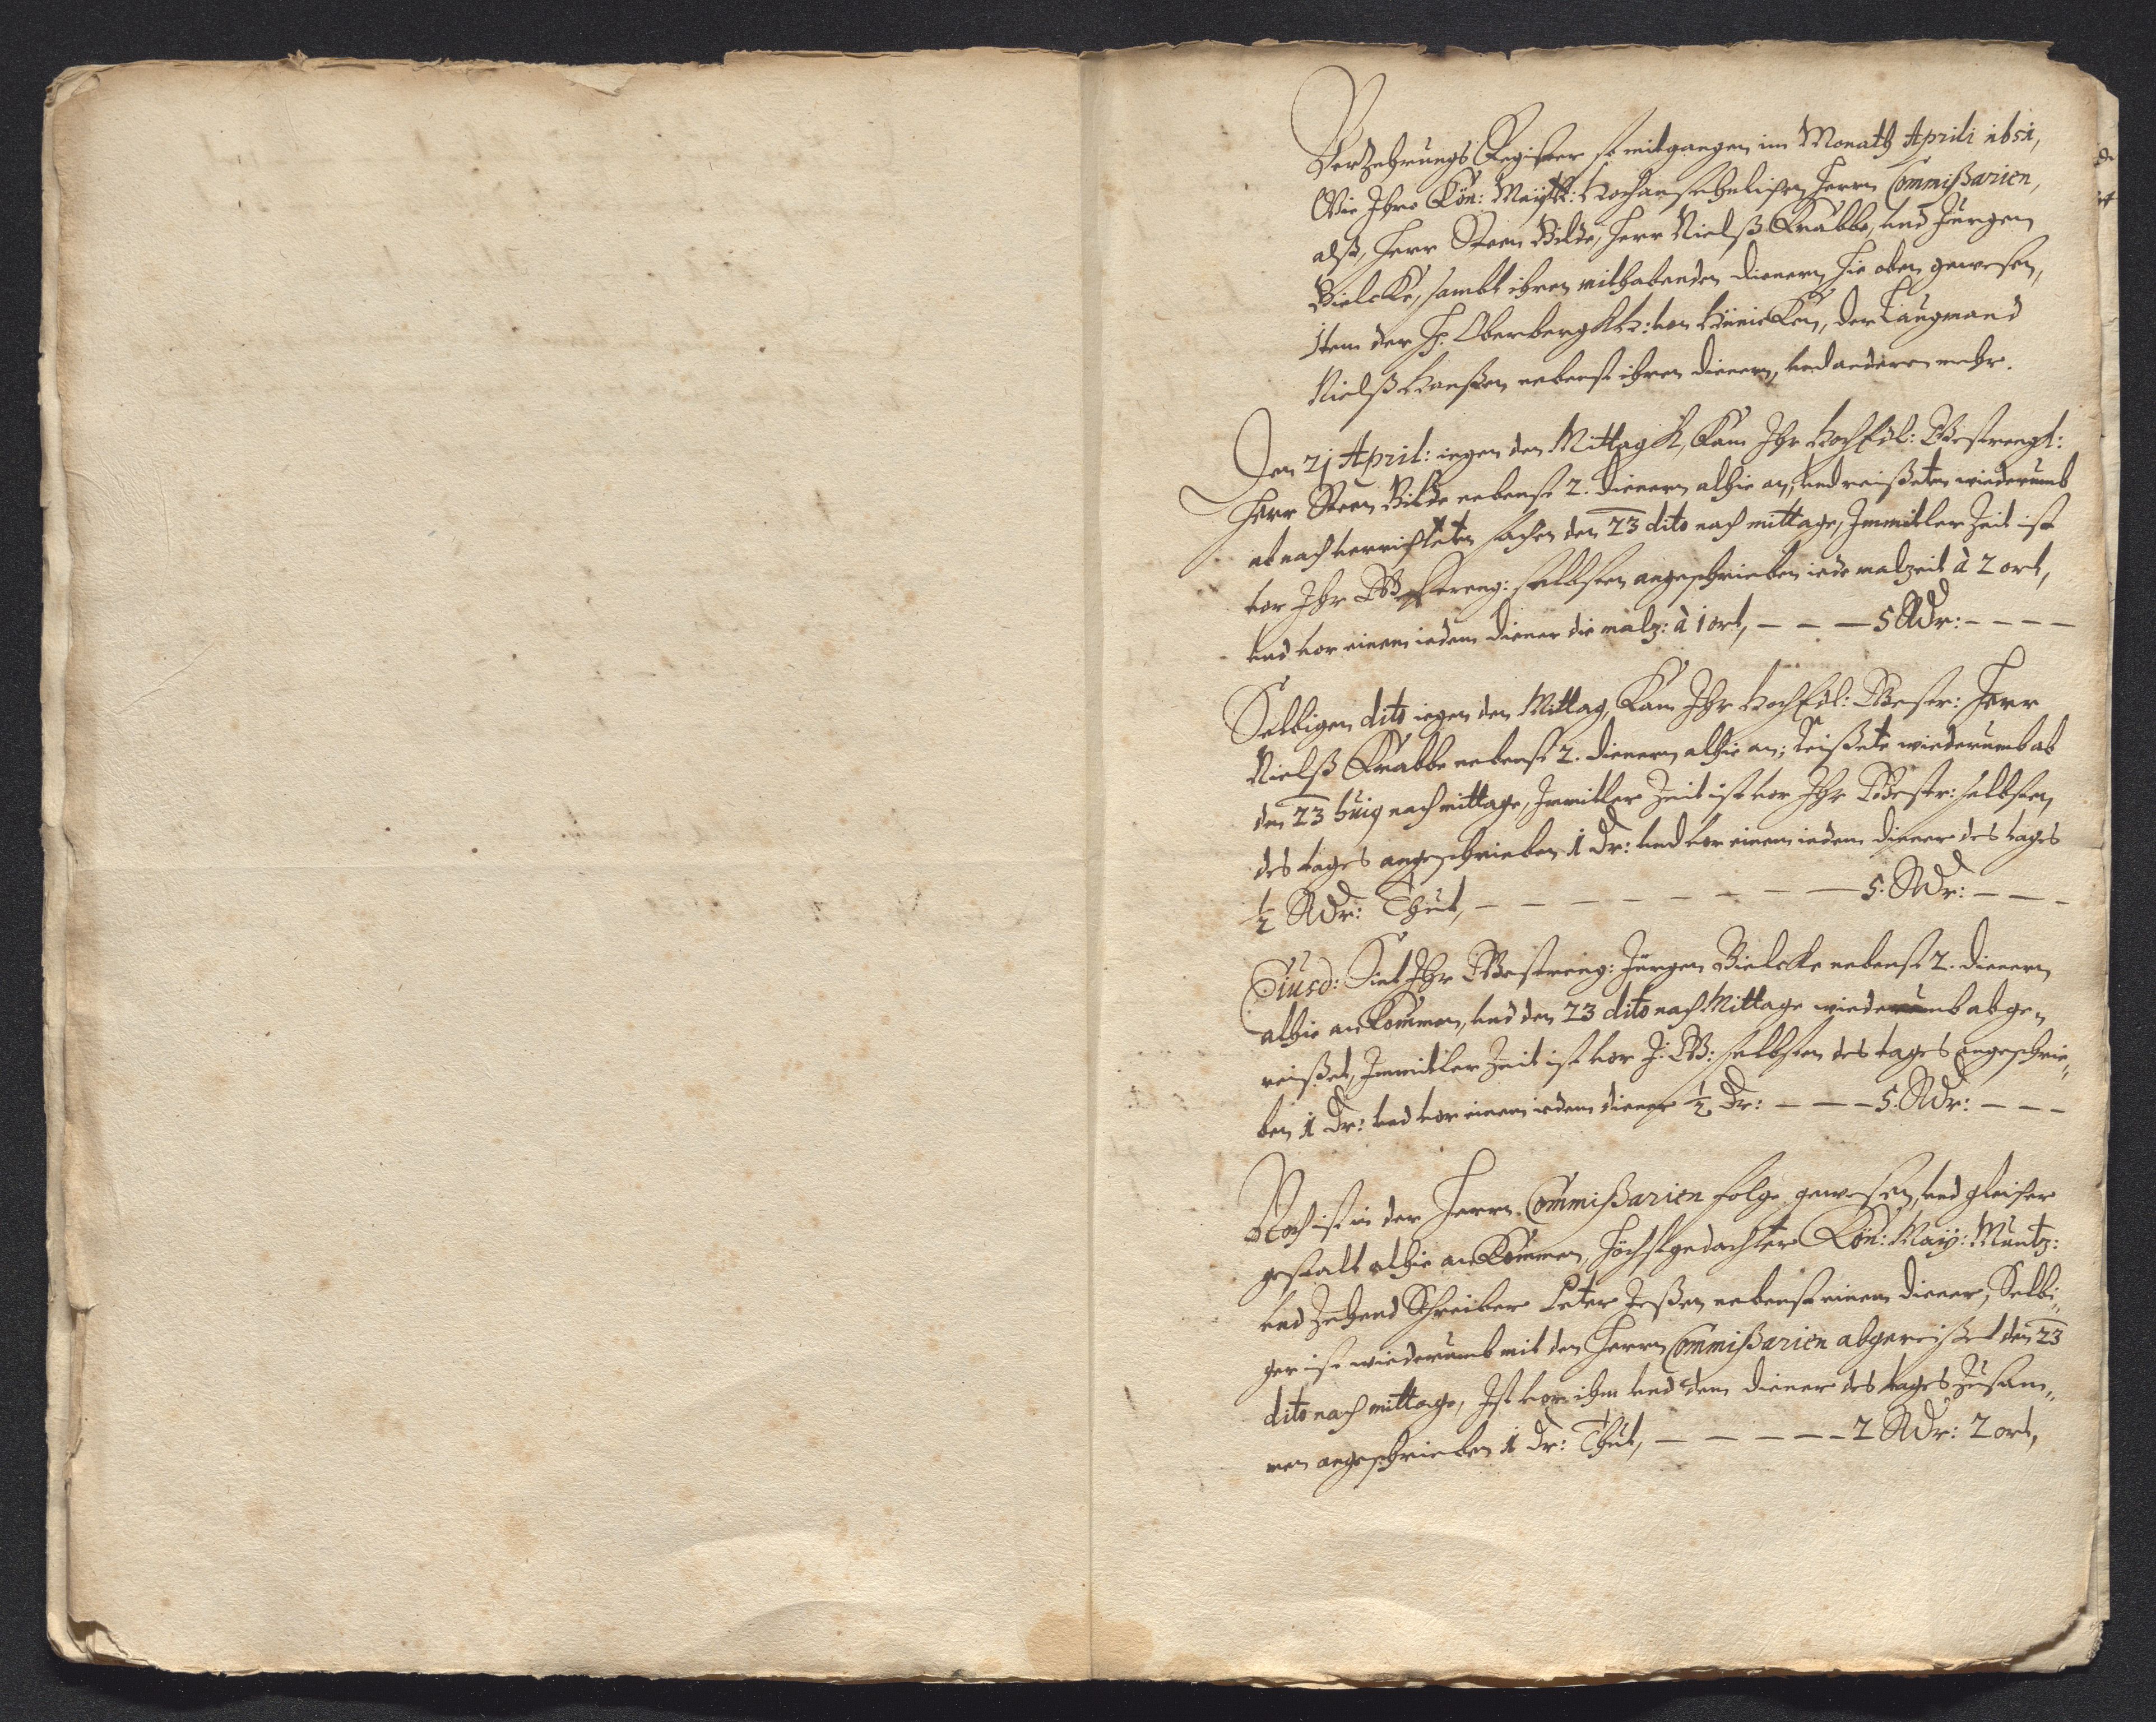 Verzehrungs Register so mitgangen im Monath Aprili 1651,
Wie Ihre Kön: Maÿtt: hochansehnlichen Herrn Commißarien,
alß, Herr Steen Bilde, Herr Nielß Krabbe, und Jürgen
Bielcke, sambt ihren mithabenden dienern hie oben gewesen,
Item der H. Oberbergkh: von hänicken, der Laugmand
Nielß Hanßen nebenst ihren dienern, und anderen mehr.
Den 21 April: iegen den Mittagk, Kam Ihr HochEdl: Gestrengh:
Herr Steen Bilde nebenst 2. dienern alhie an, und reißeten wiederumb
ab nach verrichteten sachen den 23 dito nach mittage, Immitler Zeit ist
vor Ihr Gestreng: selbsten angeschrieben iede malzeit à 2 ort,
und vor einem iedem diener die malz: à 1 ort, – – – 5 Rdr: – – – –
Selbigen dito iegen den Mittag, Kam Ihr HochEdl: Gestr: Herr
Nielß Krabbe nebenst 2. dienern alhie an; Reißete wiederumb ab
den 23 huig nach mittage, Immitler Zeit ist vor Ihr Gestr: selbsten
des tages angeschrieben 1 Dr: und vor einem iedem diener des tages
½ Rdr: Thut, – – – – – – – – – 5. Rdr: – – –
Eiusd: Sint Ihr Gestreng: Jürgen Bielcke nebenst 2. dienern
alhie an Kommen, und den 23 dito nach Mittage wiederumb abge„
reißet, Immitler Zeit ist vor J: G: selbsten des tages angeschrie„
ben 1 Dr: und vor einem iedem diener ½ Dr: – – – 5. Rdr: – – –
Noch ist in der Herrn Commißarien folge gewesen, und gleicher
gestalt alhie an Kommen, Höchstgedachter Kön: Maÿ: Müntz:
und Zehend Schreiber Peter Jeßen nebenst einem diener, Selbi„
ger ist wiederumb mit den Herrn Commißarien abgereißet den 23
dito nach mittage, Ist vor ihm und dem diener des tages Zusam„
men angeschrieben 1 Dr: Thut, – – – – – 2 Rdr: 2 ort,